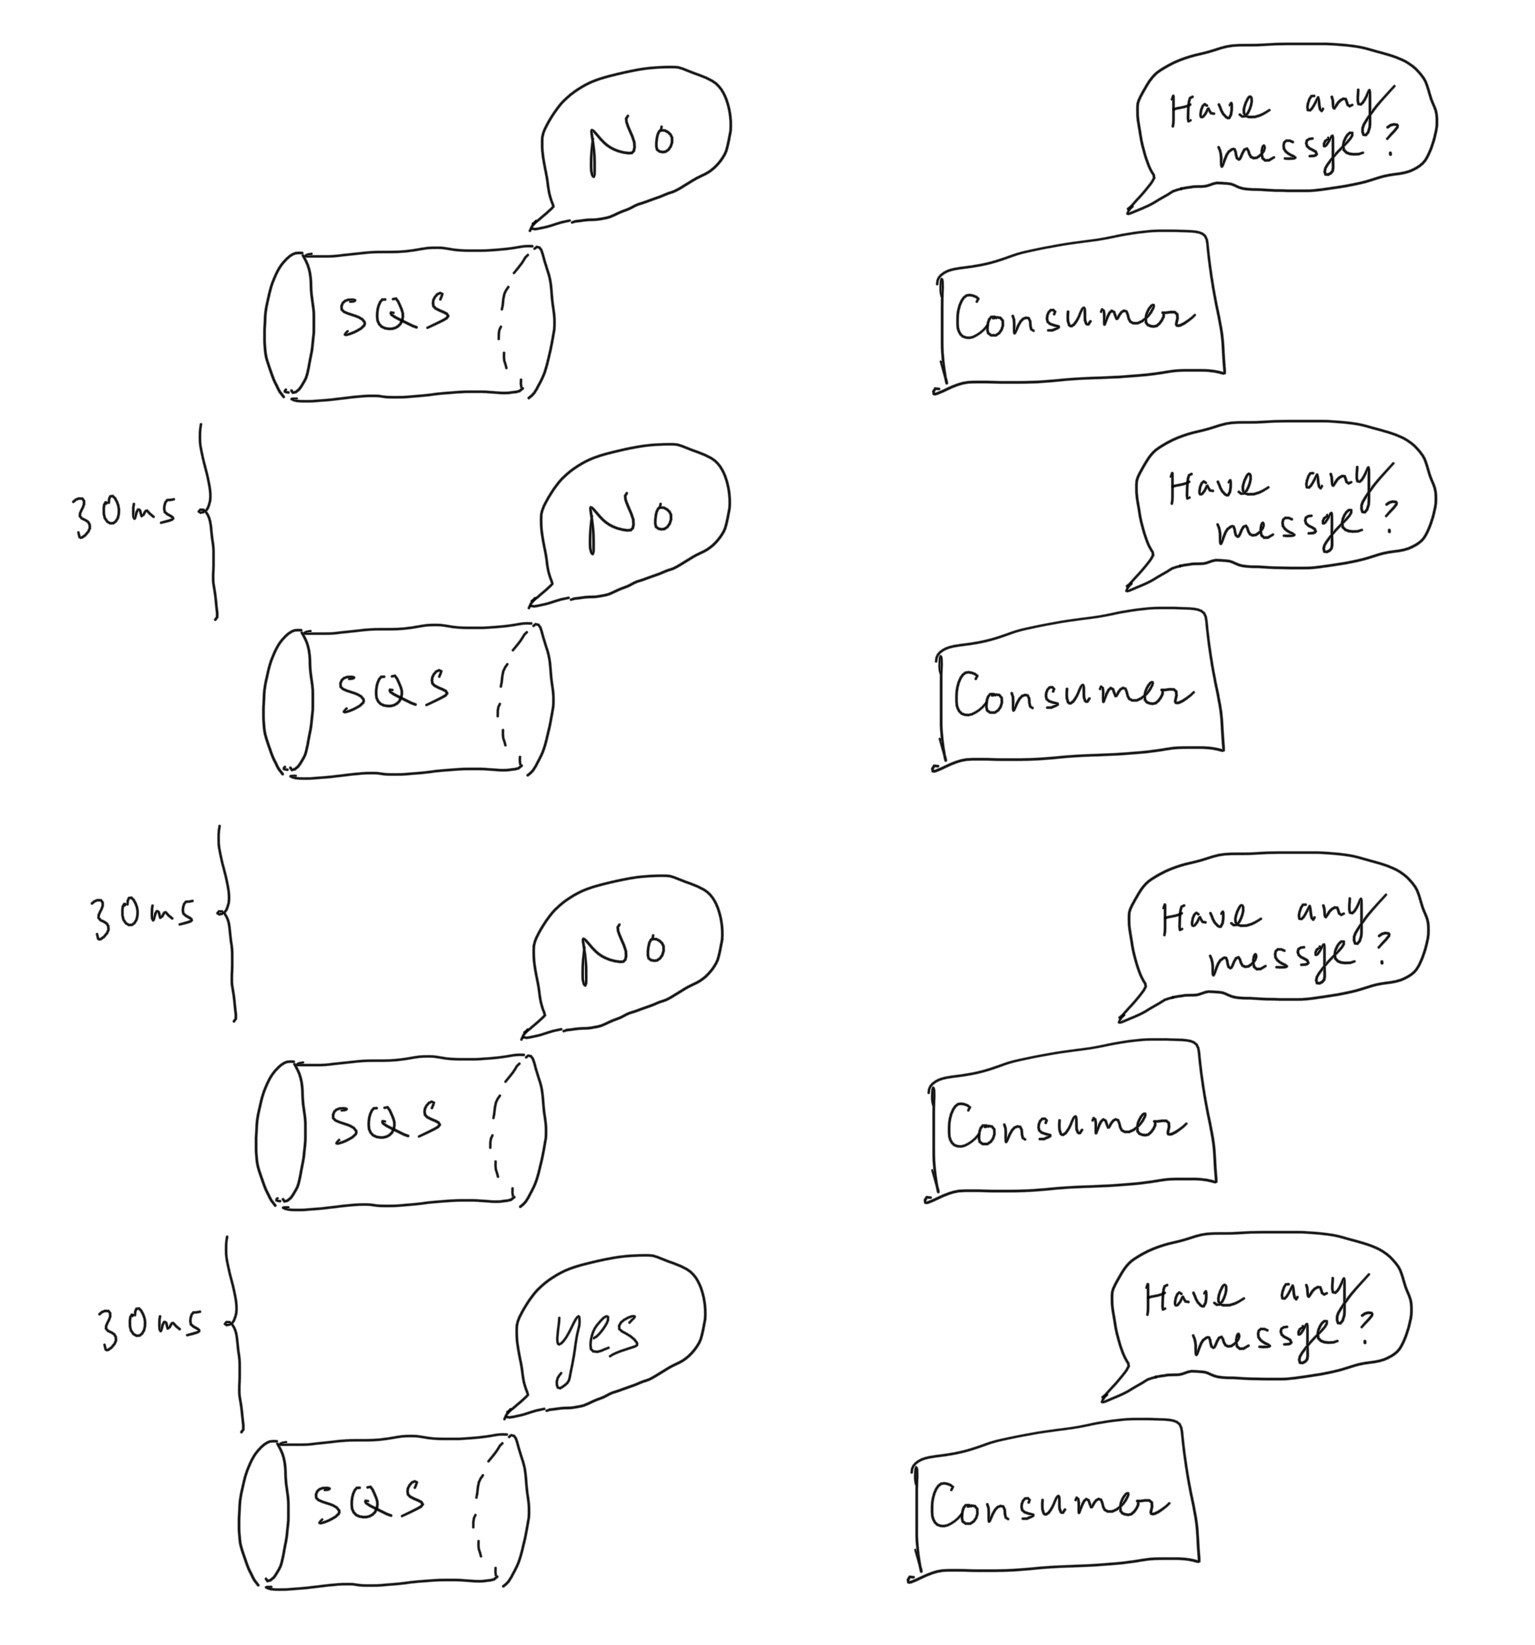 No
Have any
messge?
SQS
Consumer
30ms
No
Have any
messge?
SQS
Consumer
30ms
No
Have any
messge?
SQS
Consumer
30ms
yes
Have any
messge?
SQS
Consumer